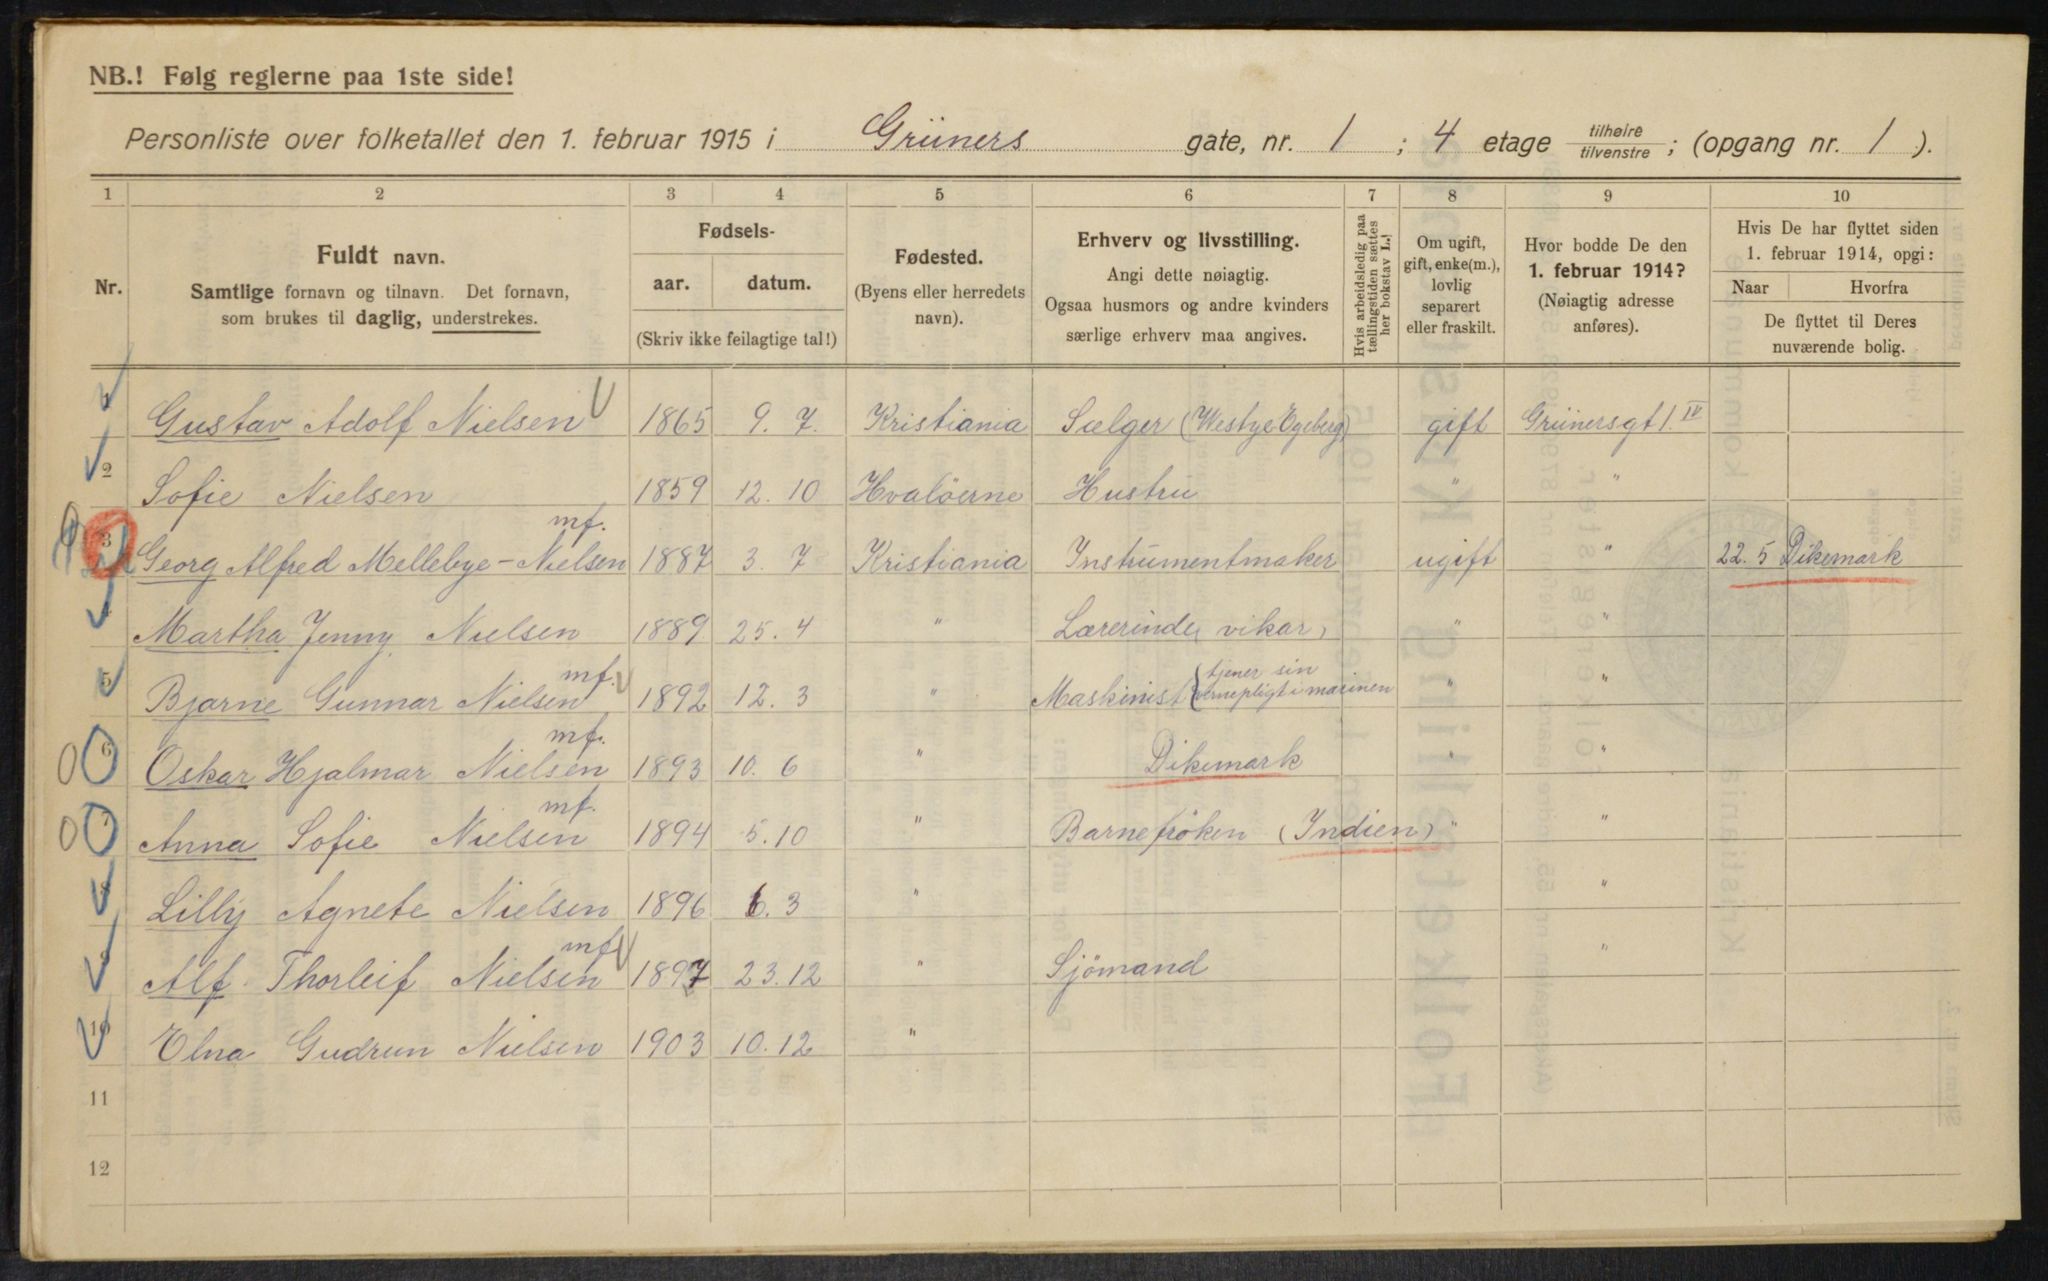 NB.! Følg reglerne paa 1ste side!
Personliste over folketallet den 1. februar 1915 i Grüners gate, nr. 1 ; 4 etage tilhøire tilvenstre ; (opgang nr. 1 ).
1 2 3 4 5 6 7 8 9 10
Nr.
Fuldt navn.
Samtlige fornavn og tilnavn. Det fornavn,
som brukes til daglig, understrekes.
Fødsels-
aar. datum.
(Skriv ikke feilagtige tal!)
Fødested.
(Byens eller herredets
navn).
Erhverv og livsstilling.
Angi dette nøiagtig.
Ogsaa husmors og andre kvinders
særlige erhverv maa angives.
Hvis arbeidsledig paa
tællingstiden sættes
her bokstav L.!
Om ugift,
gift, enke(m.),
lovlig
separert
eller fraskilt.
Hvor bodde De den
1. februar 1914?
(Nøiagtig adresse
anføres).
Hvis De har flyttet siden
1. februar 1914, opgi:
Naar Hvorfra
De flyttet til Deres
nuværende bolig.
1 Gustav Adolf Nielsen 1865 9. 7. Kristiania Sælger (Westye Egeberg) gift Grünersgt 1. IV
2 Sofie Nielsen 1859 12. 10 Hvalöerne Hustru " "
mf.
3 Georg Alfred Mellebye-Nielsen 1887 3. 7 Kristiania Instrumentmaker ugift " 22. 5 Dikemark
4 Martha Jenny Nielsen 1889 25. 4 " Lærerinde (vikar) " "
mf.
5 Bjarne Gunnar Nielsen 1892 12. 3 " Maskinist (tjener sin
vernepligt i marinen " "
mf.
6 Oskar Hjalmar Nielsen 1893 10. 6 " Dikemark " "
mf.
7 Anna Sofie Nielsen 1894 5. 10 " Barnefröken (Indien) " "
8 Lilly Agnete Nielsen 1896 6. 3 " "
mf
9 Alf Thorleif Nielsen 1897 23. 12 " Sjömand "
10 Elna Gudrun Nielsen 1903 10. 12 "
11
12